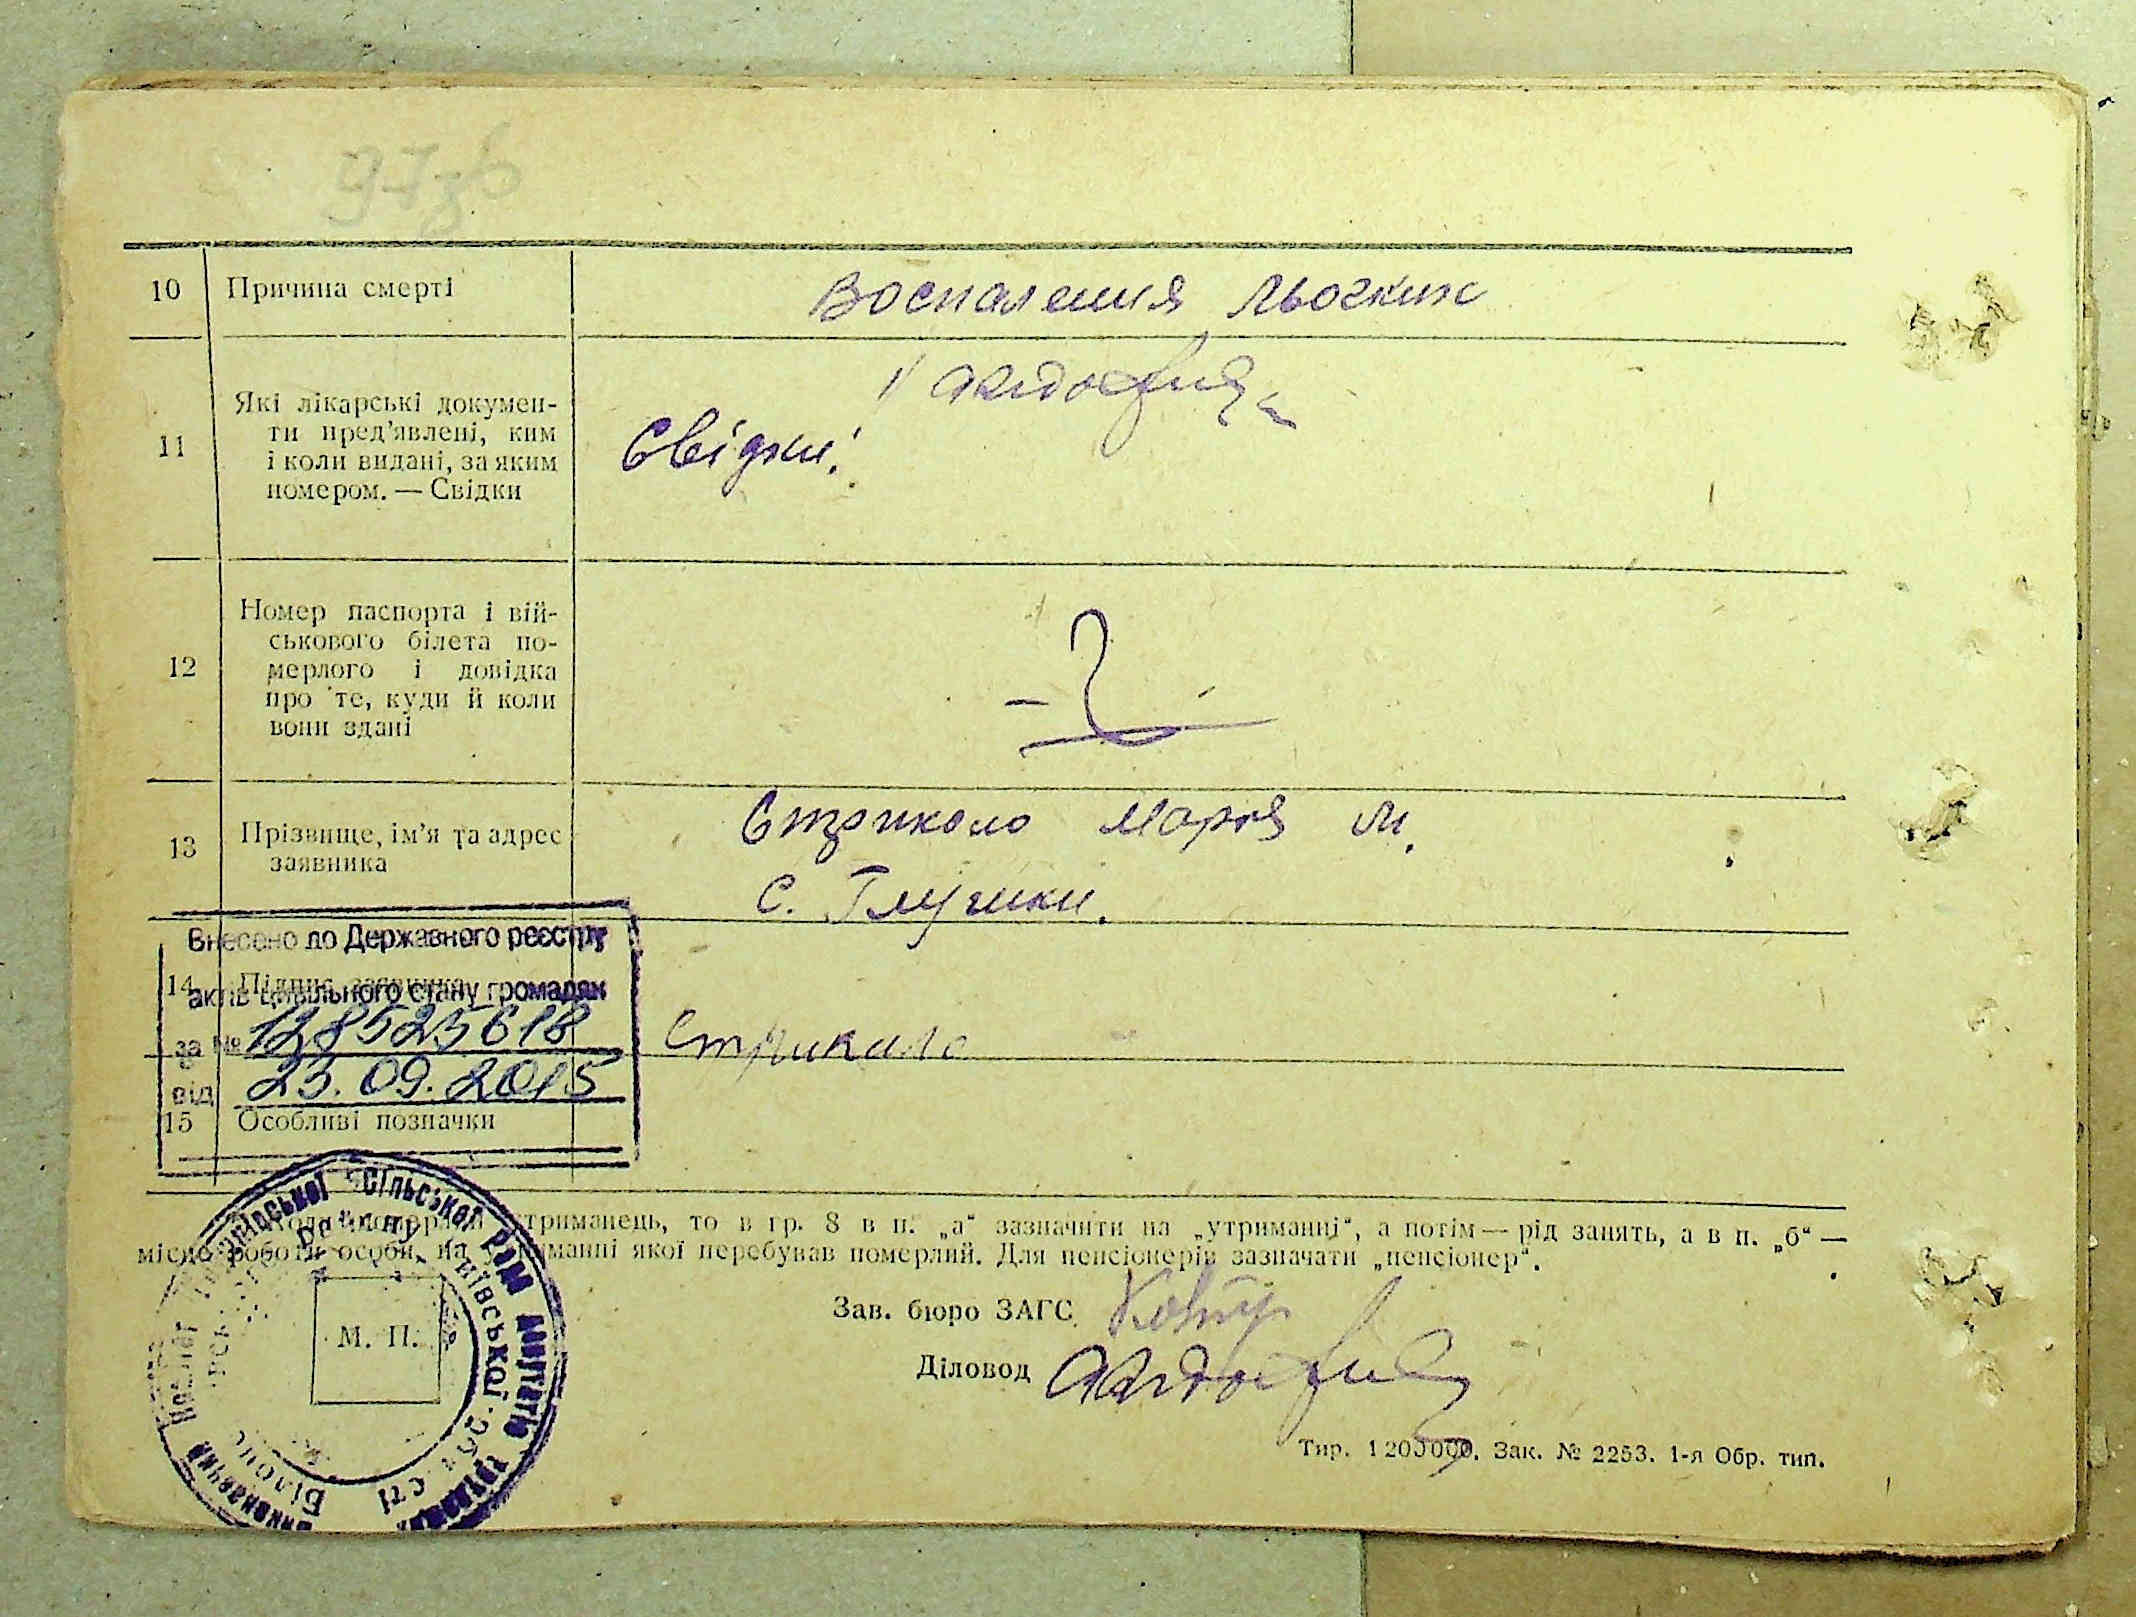 97зв
10 Причина смерті
Воспаления льогких
11 Які лікарські докумен-
ти пред'явлені, ким
і коли видані, за яким
номером. — Свідки
Свідки:
12 Номер паспорта і вій-
ськового білета по-
мерлого і довідка
про те, куди й коли
вони здані
13 Прізвище, ім'я та адрес
заявника
Стрикало Марія М.
с. Глушки.
Внесено до Державного реєстру
14 Підпис заявника
актів цивільного стану громадян
за № 128525618
Стрикало
від 23.09.2015
15 Особливі позначки
утриманець, то в гр. 8 в п. „а“ зазначити на „утриманні“, а потім — рід занять, а в п. „б“ —
місце роботи особи, на утриманні якої перебував померлий. Для пенсіонерів зазначати „пенсіонер“.
Сільської Ради депутатів
району Київської
Виконавчий
М. П.
Зав. бюро ЗАГС
Діловод
Тир. 1200000. Зак. № 2253. 1-я Обр. тип.